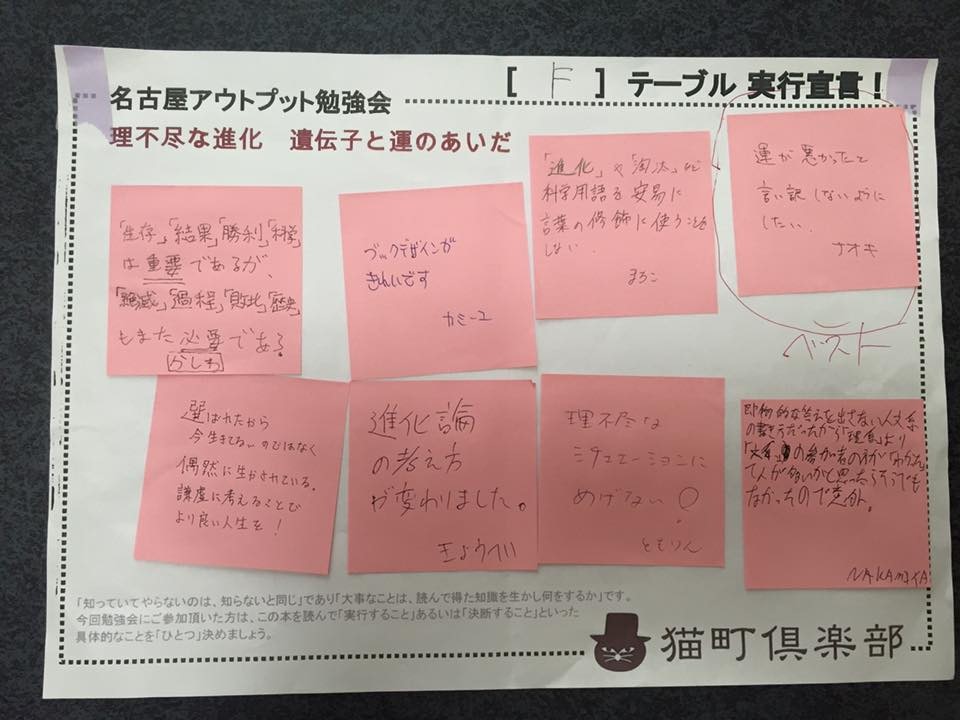 [ F ] テーブル 実行宣言！
名古屋アウトプット勉強会
理不尽な進化 遺伝子と運のあいだ
「生存」「結果」「勝利」「科学」
は重要であるが、
「絶滅」「過程」「敗北」「歴史」
もまた必要である。
かしわ
ブックデザインが
きれいです
カミーユ
「進化」や「淘汰」など
科学用語を安易に
言葉の修飾に使うことを
しない.
まろこ
運が悪かったと
言い訳しないように
したい.
ナオキ
ベスト
選ばれたから
今生きてるいのではなく
偶然に生かされている.
謙虚に考えることで
より良い人生を！
進化論
の考え方
が変わりました。
ようへい
理不尽な
シチュエーションに
めげない！
ともりん
即物的な答えを出さない人文系
の書き方だったから「理系」より
「文系」の参加者の方が
人が多いかと思ったらそうでも
なかったので意外。
NAKAMIYA
「知っていてやらないのは、知らないと同じ」であり「大事なことは、読んで得た知識を生かし何をするか」です。
今回勉強会にご参加頂いた方は、この本を読んで「実行すること」あるいは「決断すること」といった
具体的なことを「ひとつ」決めましょう。
猫町倶楽部